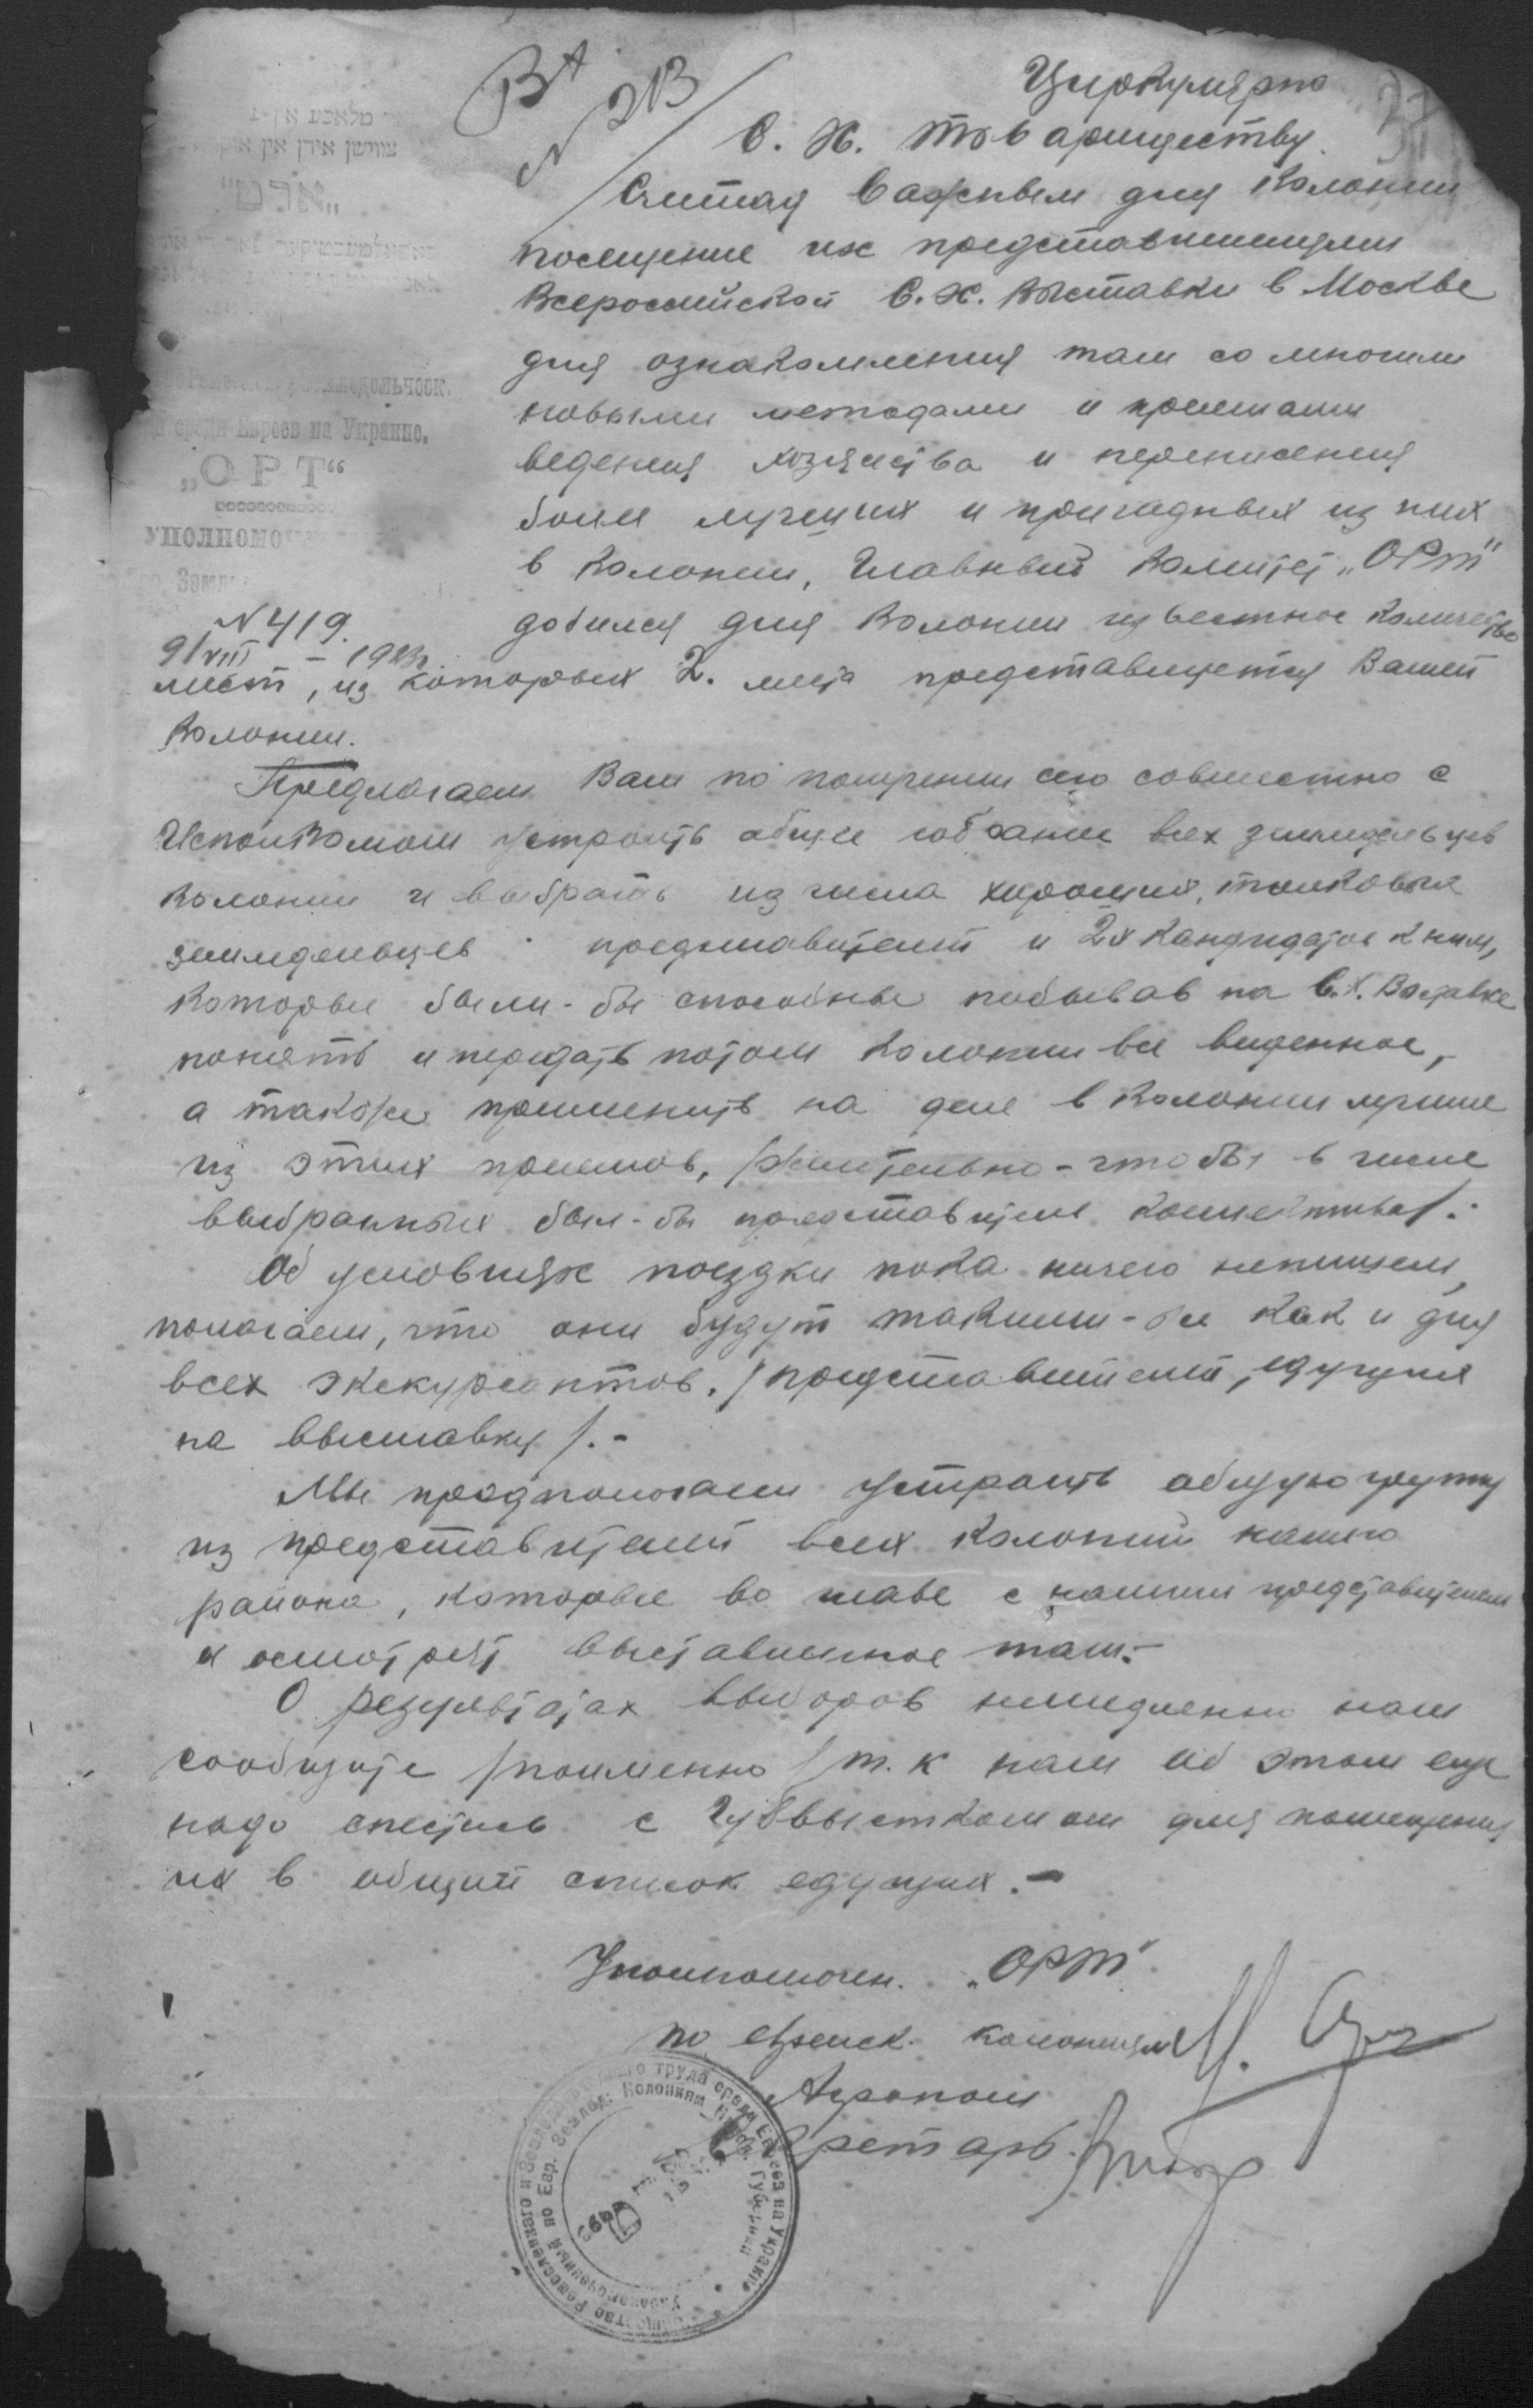 Циркулярно
С. Х. товариществу.
N 213
Считая важным для колонии
посещение их представителями
Всероссийской С.Х. выставки в Москве
для ознакомления там со многими
новыми методами и приемами
ведения хозяйства и перенесения
более лучших и пригодных из них
в колонии, Главный Комитет „ОРТ"
добился для колонии известное количество
среди Евреев на Украине.
„ОРТ“
N 419.
9/VIII – 1923г.
мест, из которых 2. места представляется Вашей
колонии.
Предлагаем Вам по получении сего совместно с
Исполкомом устроить общее собрание всех земледельцев
колонии и выбрать из числа хороших, толковых
земледельцев представителей и 2х кандидатов к ним,
которые были-бы способны побывав на С.Х. Выставке
понять и передать потом колонии все виденное,
а также применить на деле в колонии лучшие
из этих приемов, /желательно - чтобы в числе
выбранных был-бы представитель коллектива/.-
Об условиях поездки пока ничего непишем,
полагаем, что они будут такими-же как и для
всех экскурсантов, /представителей, едущих
на выставку/.-
Мы предполагаем устроить общую группу
из представителей всех колоний нашего
района, которые во главе с нашим представителем
и осмотрят выставленное там.-
О результатах выборов немедленно нам
сообщите /поименно/ т.к нам об этом еще
надо снестись с Губвысткомом для помещения
их в общий список едущих.-
Уполномочен. „ОРТ"
по еврейск. колониям
Агроном
Секретарь